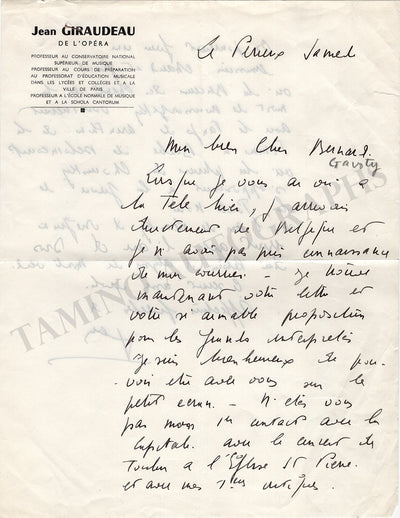 Jean GIRAUDEAU
DE L'OPÉRA
PROFESSEUR AU CONSERVATOIRE NATIONAL
SUPÉRIEUR DE MUSIQUE
PROFESSEUR AU COURS DE PRÉPARATION
AU PROFESSORAT D'ÉDUCATION MUSICALE
DANS LES LYCÉES ET COLLÈGES ET A LA
VILLE DE PARIS
PROFESSEUR A L'ÉCOLE NORMALE DE MUSIQUE
ET A LA SCHOLA CANTORUM
Le Perreux Samedi
Mon bien Cher Bernard.
Gavoty
Lorsque je vous ai vu à
la Télé hier, j'arrivais
directement de Belgique et
je n'avais pas pris connaissance
de mon courrier - je trouve
maintenant votre lettre et
votre si aimable proposition
pour les grands interprètes
Je suis bien heureux de pou-
voir être avec vous sur le
petit écran - N'êtes vous
pas mon 1er contact avec la
Capitale. avec le concert de
Toulon à l'Eglise St Pierre.
et avec mes 1ères critiques.
TAMINO AUTOGRAPHS